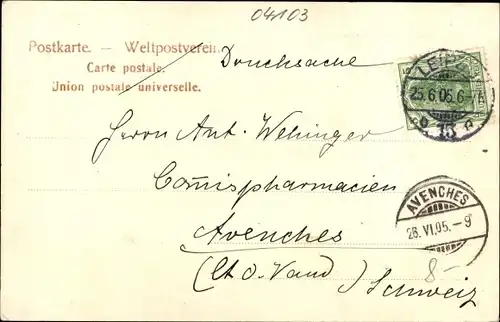 04103
Postkarte. — Weltpostverein.
Drucksache
Carte postale.
Union postale universelle.
LEIPZIG
25.6.05.6-7N
13
Herrn Ant. Wehinger
Commispharmacien
Avenches
AVENCHES
26.VI.05.-9
(Ct. d. Vaud) Schweiz
8-